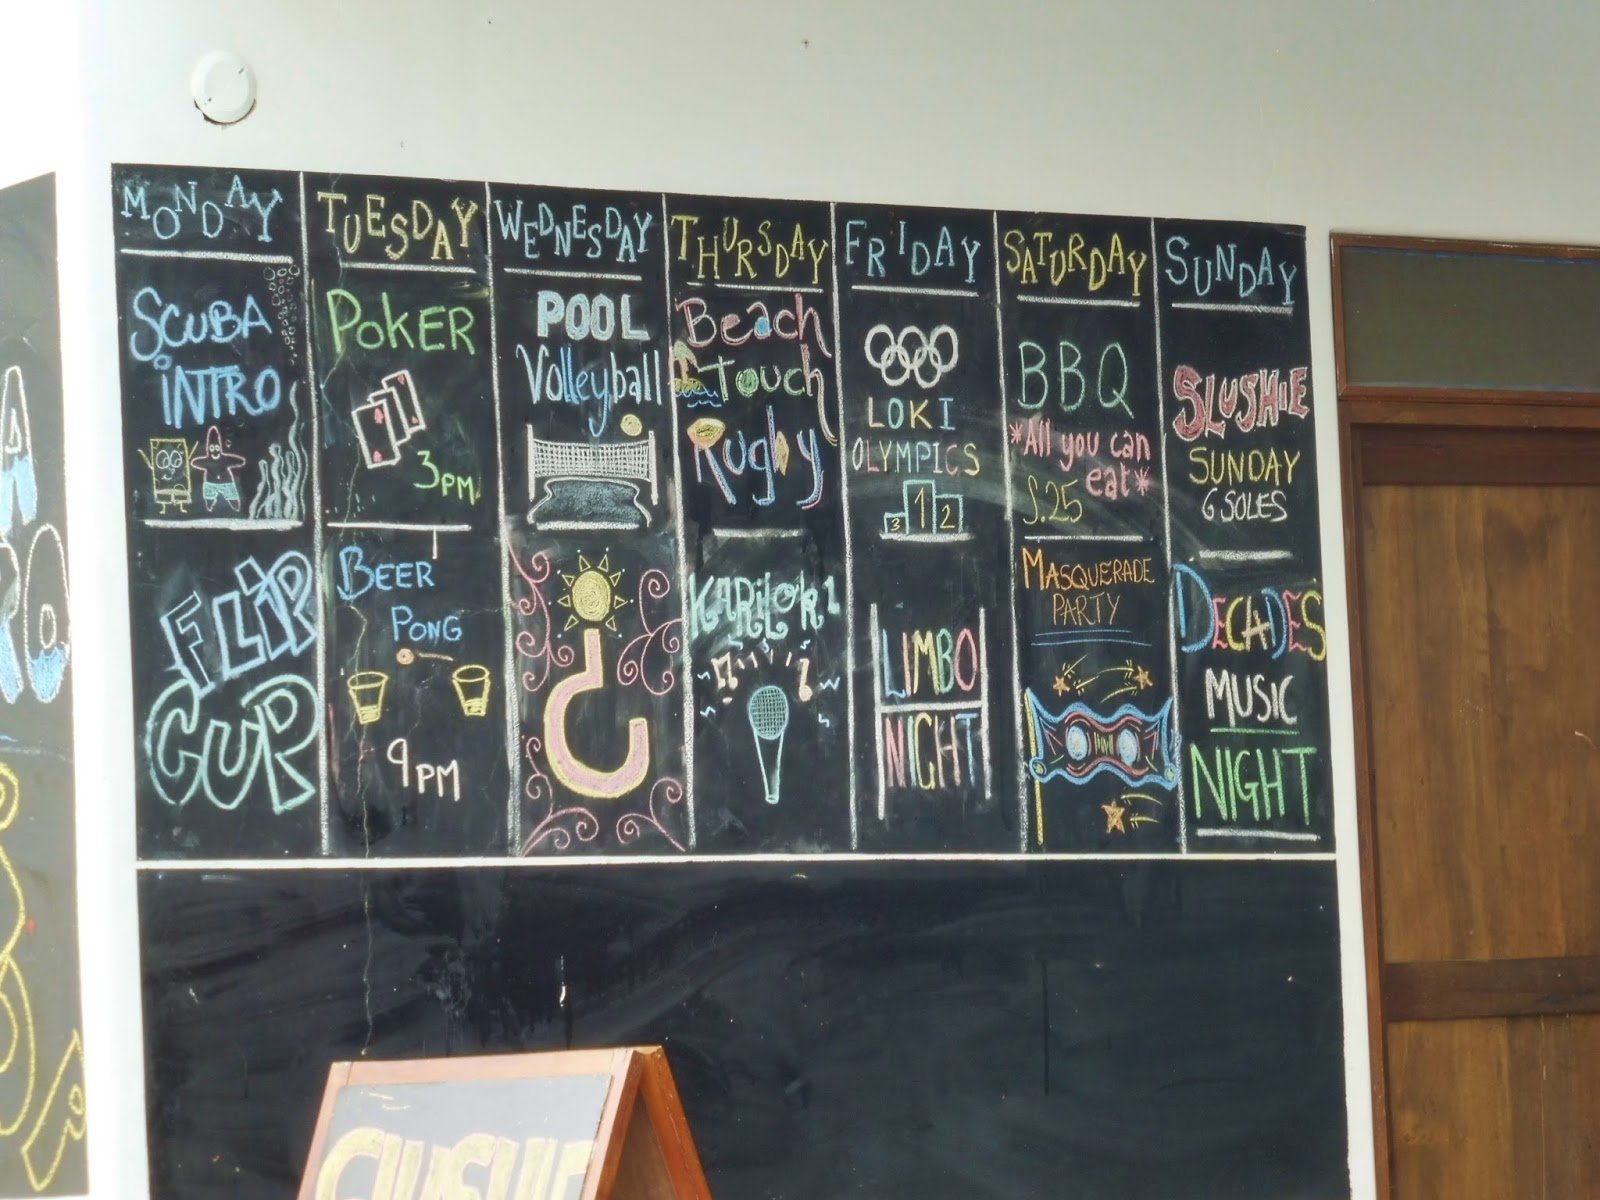 MONDAY
SCUBA
INTRO
FLIP
CUP
TUESDAY
POKER
3PM
BEER
PONG
9PM
WEDNESDAY
POOL
Volleyball
¿
THURSDAY
Beach
Touch
Rugby
FRIDAY
LOKI
OLYMPICS
3 1 2
LIMBO
NIGHT
SATURDAY
BBQ
*All you can
eat*
S.25
MASQUERADE
PARTY
SUNDAY
SLUSHIE
SUNDAY
6 SOLES
DECADES
MUSIC
NIGHT